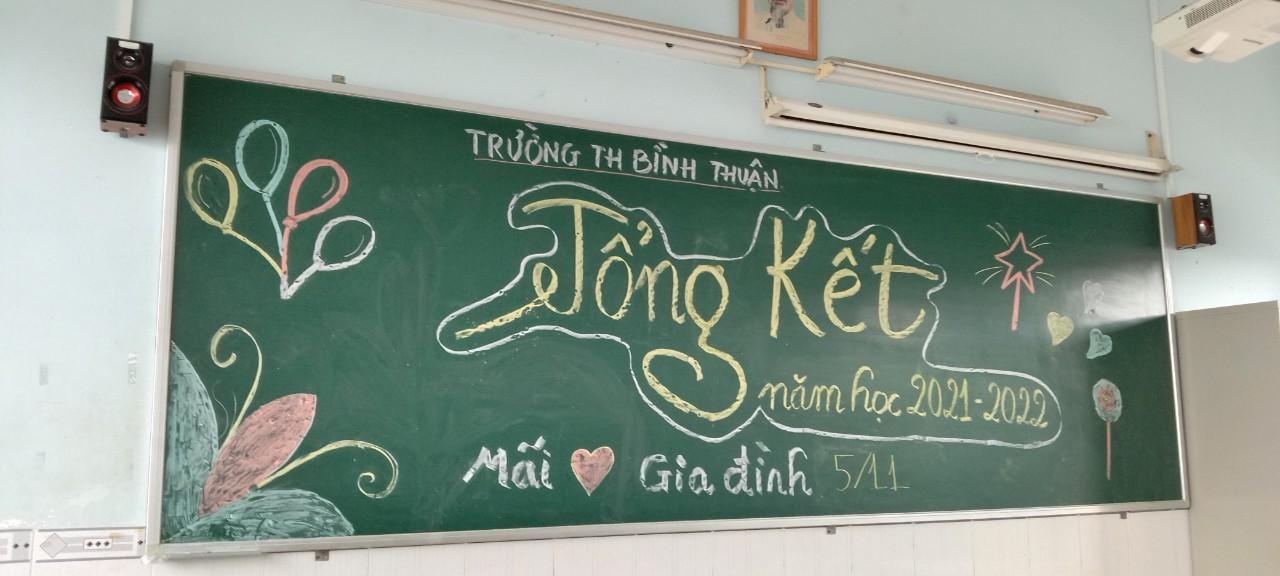 TRƯỜNG TH BÌNH THUẬN
Tổng Kết
năm học 2021-2022
Mãi ♥ Gia đình 5/11